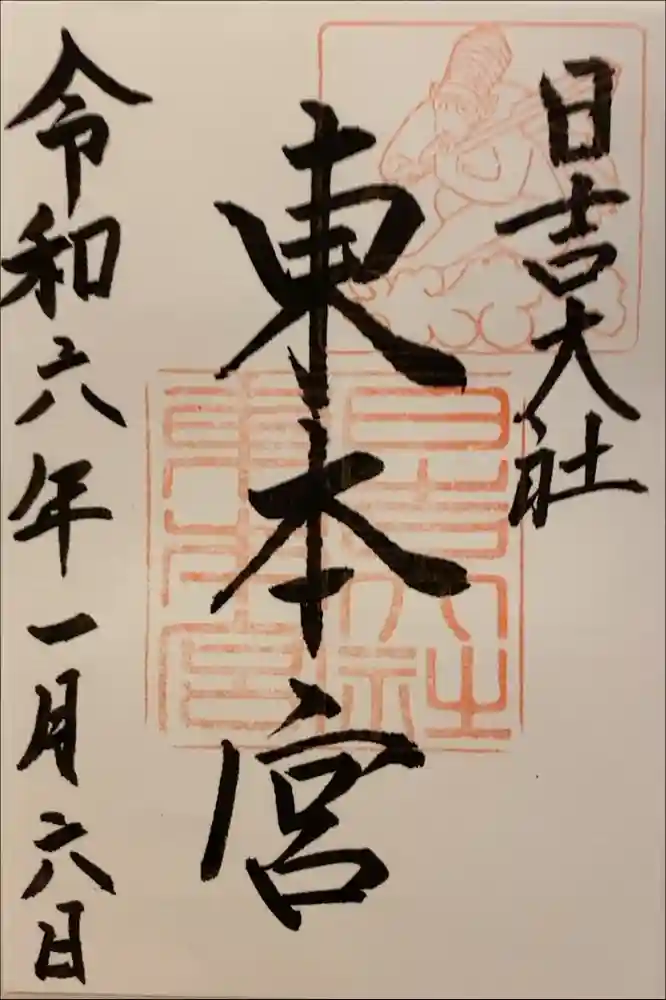 日吉大社
東本宮
令和六年一月六日
日吉大社
東本宮